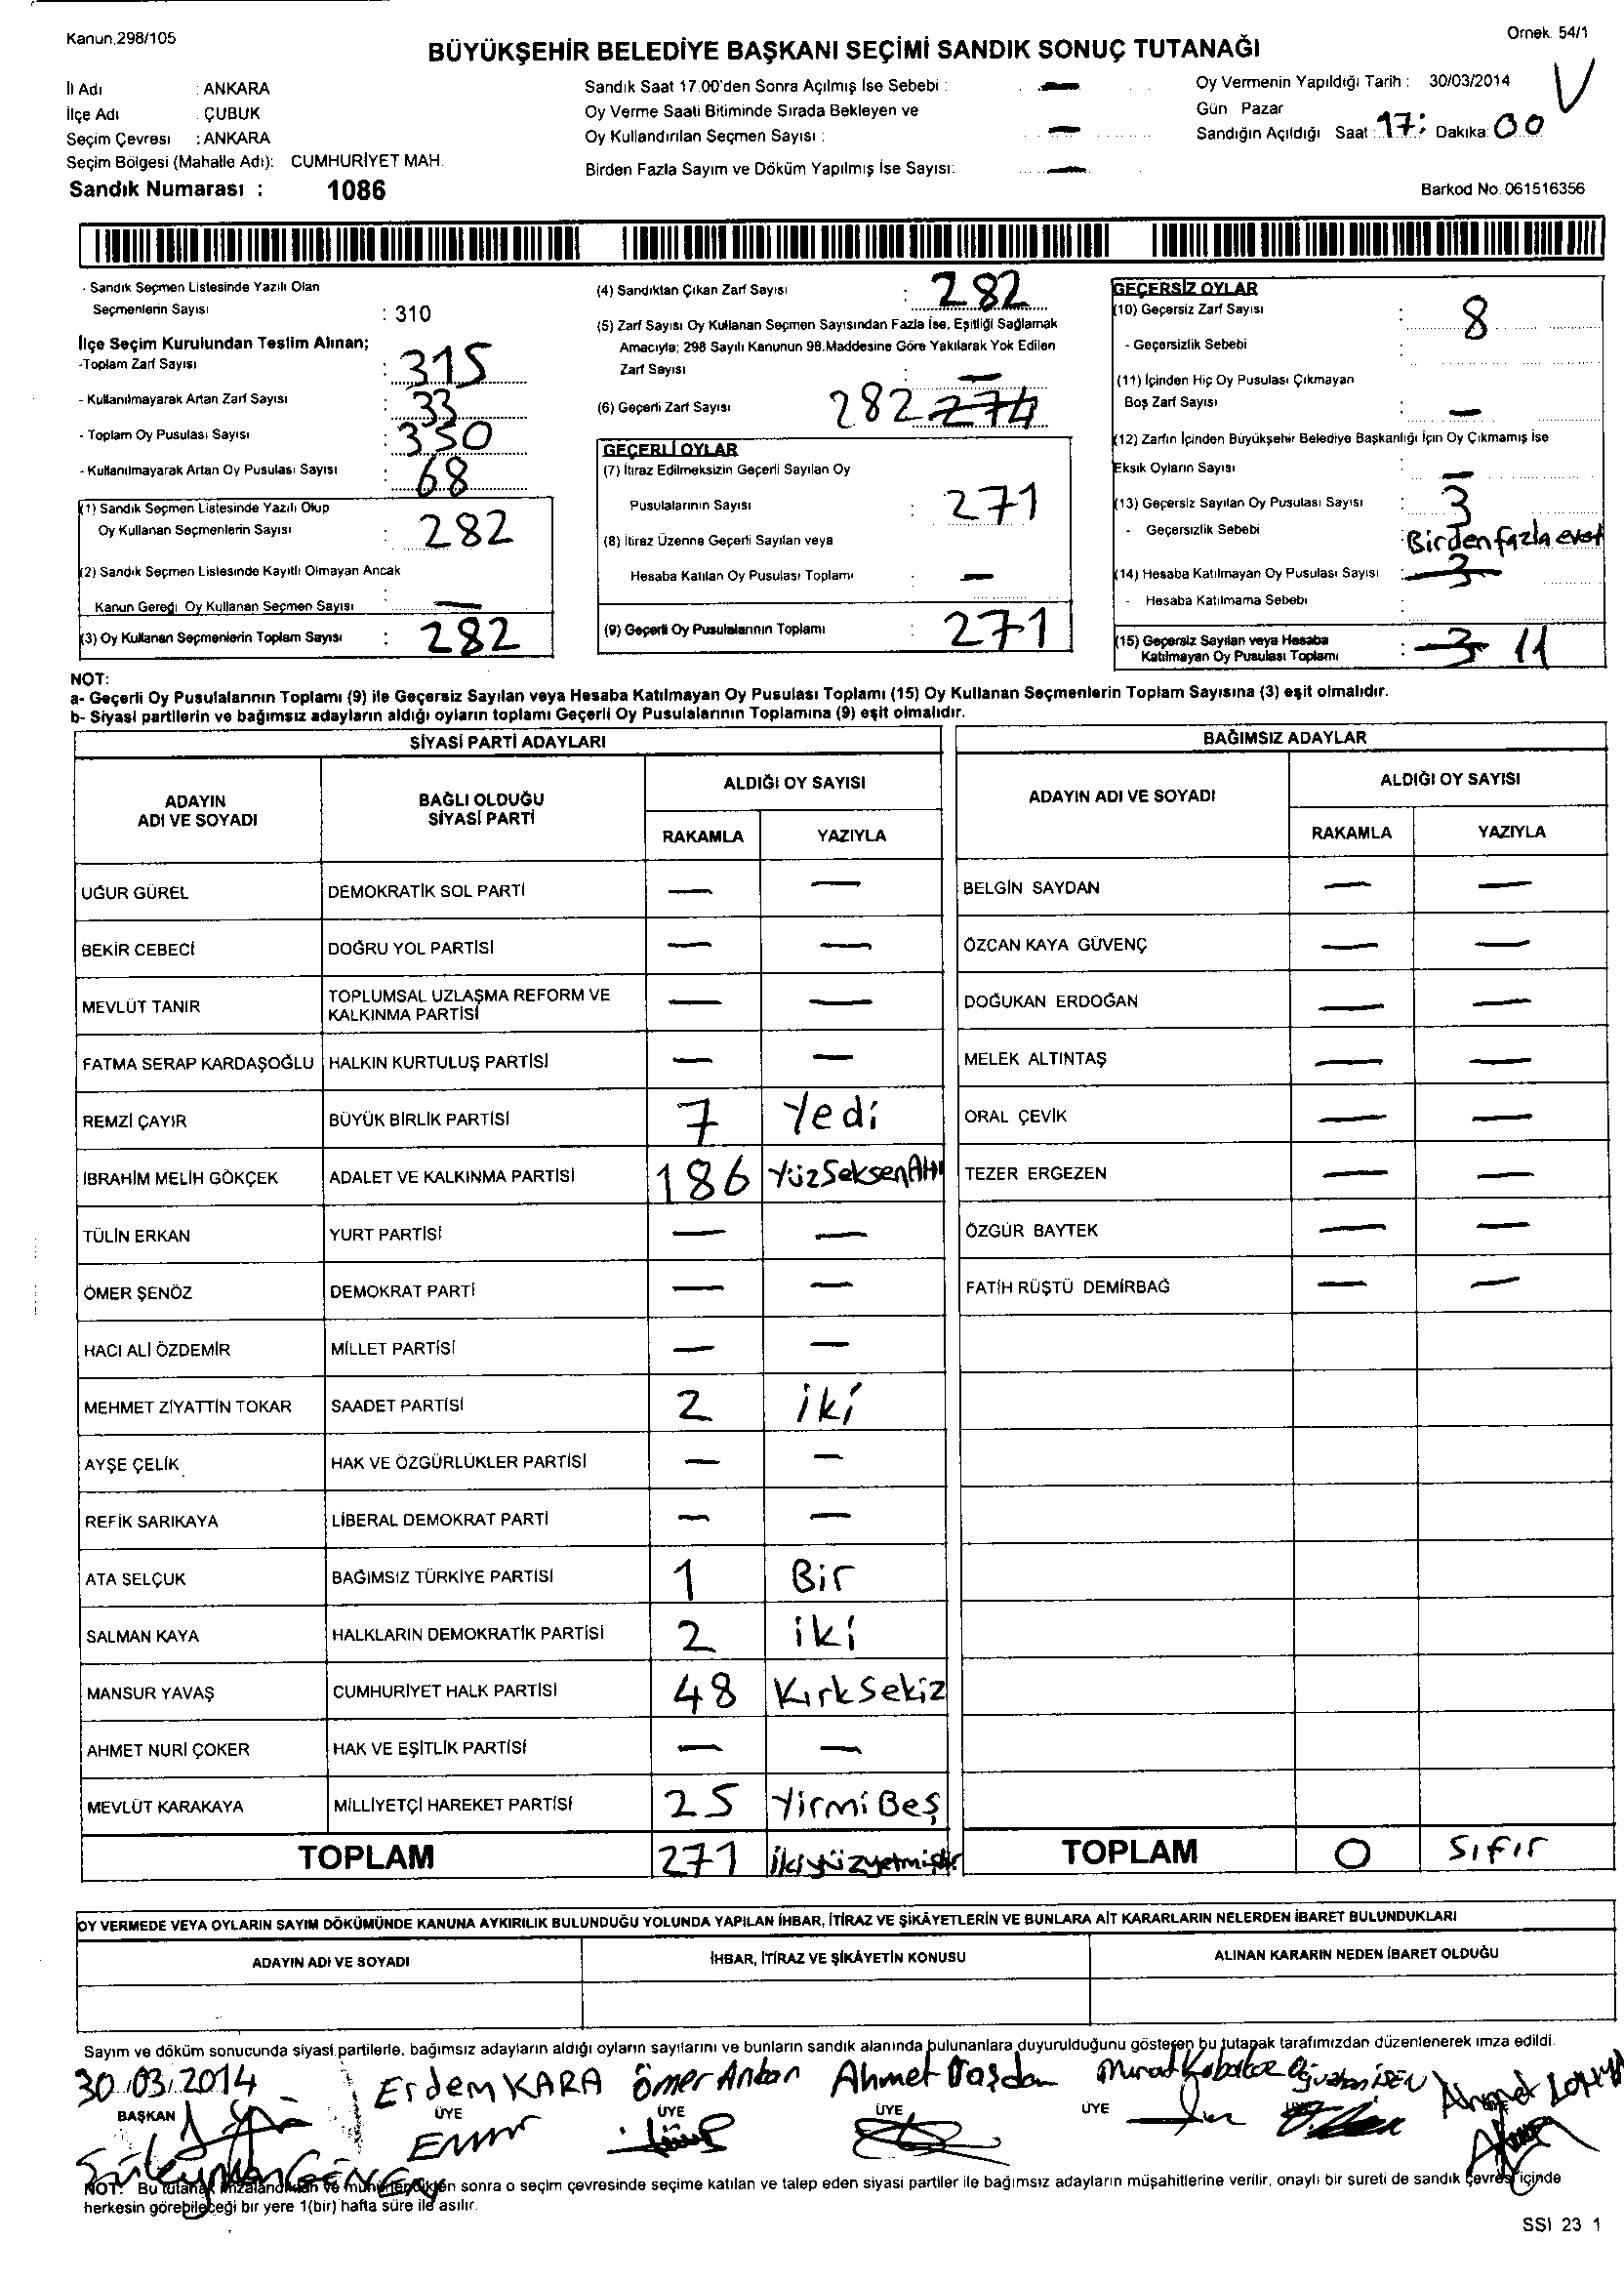 Kanun.298/105
Örnek. 54/1
BÜYÜKŞEHİR BELEDİYE BAŞKANI SEÇİMİ SANDIK SONUÇ TUTANAĞI
İl Adı : ANKARA
İlçe Adı : ÇUBUK
Seçim Çevresi : ANKARA
Seçim Bölgesi (Mahalle Adı): CUMHURİYET MAH.
Sandık Numarası : 1086
Sandık Saat 17.00'den Sonra Açılmış İse Sebebi : —
Oy Verme Saati Bitiminde Sırada Bekleyen ve
Oy Kullandırılan Seçmen Sayısı : —
Birden Fazla Sayım ve Döküm Yapılmış İse Sayısı: —
Oy Vermenin Yapıldığı Tarih : 30/03/2014
Gün Pazar
Sandığın Açıldığı Saat : 17: Dakika: 00
Barkod No.061516356
- Sandık Seçmen Listesinde Yazılı Olan
Seçmenlerin Sayısı : 310
İlçe Seçim Kurulundan Teslim Alınan;
-Toplam Zarf Sayısı : 315
- Kullanılmayarak Artan Zarf Sayısı : 33
- Toplam Oy Pusulası Sayısı : 350
- Kullanılmayarak Artan Oy Pusulası Sayısı : 68
(1) Sandık Seçmen Listesinde Yazılı Olup
Oy Kullanan Seçmenlerin Sayısı : 282
(2) Sandık Seçmen Listesinde Kayıtlı Olmayan Ancak
Kanun Gereği Oy Kullanan Seçmen Sayısı : —
(3) Oy Kullanan Seçmenlerin Toplam Sayısı : 282
(4) Sandıktan Çıkan Zarf Sayısı : 282
(5) Zarf Sayısı Oy Kullanan Seçmen Sayısından Fazla İse, Eşitliği Sağlamak
Amacıyla; 298 Sayılı Kanunun 98.Maddesine Göre Yakılarak Yok Edilen
Zarf Sayısı : —
(6) Geçerli Zarf Sayısı 282 274
GEÇERLİ OYLAR
(7) İtiraz Edilmeksizin Geçerli Sayılan Oy
Pusulalarının Sayısı : 271
(8) İtiraz Üzerine Geçerli Sayılan veya
Hesaba Katılan Oy Pusulası Toplamı : —
(9) Geçerli Oy Pusulalarının Toplamı : 271
GEÇERSİZ OYLAR
(10) Geçersiz Zarf Sayısı : 8
- Geçersizlik Sebebi :
(11) İçinden Hiç Oy Pusulası Çıkmayan
Boş Zarf Sayısı : —
(12) Zarfın İçinden Büyükşehir Belediye Başkanlığı İçin Oy Çıkmamış İse
Eksik Oyların Sayısı : —
(13) Geçersiz Sayılan Oy Pusulası Sayısı : 3
- Geçersizlik Sebebi : Birden fazla evet
(14) Hesaba Katılmayan Oy Pusulası Sayısı : 3
- Hesaba Katılmama Sebebi :
(15) Geçersiz Sayılan veya Hesaba
Katılmayan Oy Pusulası Toplamı : 3 11
NOT:
a- Geçerli Oy Pusulalarının Toplamı (9) ile Geçersiz Sayılan veya Hesaba Katılmayan Oy Pusulası Toplamı (15) Oy Kullanan Seçmenlerin Toplam Sayısına (3) eşit olmalıdır.
b- Siyasi partilerin ve bağımsız adayların aldığı oyların toplamı Geçerli Oy Pusulalarının Toplamına (9) eşit olmalıdır.
SİYASİ PARTİ ADAYLARI
ADAYIN ADI VE SOYADI
BAĞLI OLDUĞU SİYASİ PARTİ
ALDIĞI OY SAYISI
RAKAMLA YAZIYLA
UĞUR GÜREL DEMOKRATİK SOL PARTİ — —
BEKİR CEBECİ DOĞRU YOL PARTİSİ — —
MEVLÜT TANIR TOPLUMSAL UZLAŞMA REFORM VE KALKINMA PARTİSİ — —
FATMA SERAP KARDAŞOĞLU HALKIN KURTULUŞ PARTİSİ — —
REMZİ ÇAYIR BÜYÜK BİRLİK PARTİSİ 7 Yedi
İBRAHİM MELİH GÖKÇEK ADALET VE KALKINMA PARTİSİ 186 YüzSeksenAltı
TÜLİN ERKAN YURT PARTİSİ — —
ÖMER ŞENÖZ DEMOKRAT PARTİ — —
HACI ALİ ÖZDEMİR MİLLET PARTİSİ — —
MEHMET ZİYATTİN TOKAR SAADET PARTİSİ 2 iki
AYŞE ÇELİK HAK VE ÖZGÜRLÜKLER PARTİSİ — —
REFİK SARIKAYA LİBERAL DEMOKRAT PARTİ — —
ATA SELÇUK BAĞIMSIZ TÜRKİYE PARTİSİ 1 Bir
SALMAN KAYA HALKLARIN DEMOKRATİK PARTİSİ 2 iki
MANSUR YAVAŞ CUMHURİYET HALK PARTİSİ 48 Kırk Sekiz
AHMET NURİ ÇOKER HAK VE EŞİTLİK PARTİSİ — —
MEVLÜT KARAKAYA MİLLİYETÇİ HAREKET PARTİSİ 25 Yirmi Beş
TOPLAM 271
BAĞIMSIZ ADAYLAR
ADAYIN ADI VE SOYADI
ALDIĞI OY SAYISI
RAKAMLA YAZIYLA
BELGİN SAYDAN — —
ÖZCAN KAYA GÜVENÇ — —
DOĞUKAN ERDOĞAN — —
MELEK ALTINTAŞ — —
ORAL ÇEVİK — —
TEZER ERGEZEN — —
ÖZGÜR BAYTEK — —
FATİH RÜŞTÜ DEMİRBAĞ — —
TOPLAM 0 Sıfır
OY VERMEDE VEYA OYLARIN SAYIM DÖKÜMÜNDE KANUNA AYKIRILIK BULUNDUĞU YOLUNDA YAPILAN İHBAR, İTİRAZ VE ŞİKÂYETLERİN VE BUNLARA AİT KARARLARIN NELERDEN İBARET BULUNDUKLARI
ADAYIN ADI VE SOYADI İHBAR, İTİRAZ VE ŞİKÂYETİN KONUSU ALINAN KARARIN NEDEN İBARET OLDUĞU
Sayım ve döküm sonucunda siyasi partilerle, bağımsız adayların aldığı oyların sayılarını ve bunların sandık alanında bulunanlara duyurulduğunu gösteren bu tutanak tarafımızdan düzenlenerek imza edildi.
30.03.2014 Erdem KARA Ömer Ahmet Murat
BAŞKAN ÜYE ÜYE ÜYE ÜYE
NOT: Bu tutanak imzalandıktan ve mühürlendikten sonra o seçim çevresinde seçime katılan ve talep eden siyasi partiler ile bağımsız adayların müşahitlerine verilir, onaylı bir sureti de sandık çevresi içinde
herkesin görebileceği bir yere 1(bir) hafta süre ile asılır.
SSI 23 1